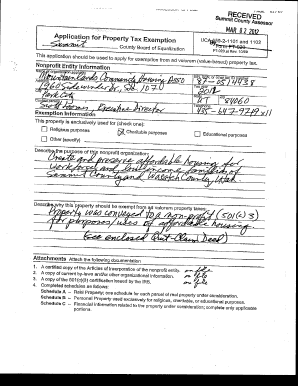 RECEIVED
Summit County Assessor
MAR 02 2012
Application for Property Tax Exemption
Summit County Board of Equalization
UCA 59-2-1101 and 1102
Form PT-020
This application should be used to apply for exemption from ad valorem (value-based) property tax.
Nonprofit Entity Information
Mountainlands Community Housing Asso
87-0514038
1960 Sidewinder Dr, Ste. 107
2012
Park City
UT 84060
Scott Loomis, Executive Director
435-647-9719 x11
Exemption Information
This property is exclusively used for (check one):
Religious purposes
Charitable purposes
Educational purposes
Other (specify)
Describe the purpose of this nonprofit organization:
Create and preserve affordable housing for
workforce and low income families of
Summit County and Wasatch County, Utah.
Describe why this property should be exempt from ad valorem property taxes:
Property was conveyed to a non-profit (501(c)3)
for purposes/uses of affordable housing.
(see enclosed Quit-Claim Deed)
Attachments Attach the following documentation
1. A certified copy of the Articles of Incorporation of the nonprofit entity. on file
2. A copy of current by-laws and/or other organizational information. on file
3. A copy of the 501(c)(3) certification issued by the IRS. on file
4. Completed schedules as follows:
Schedule A – Real Property; one schedule for each parcel of real property under consideration.
Schedule B – Personal Property used exclusively for religious, charitable, or educational purposes.
Schedule C – Financial information related to the property under consideration; complete only applicable
portions.